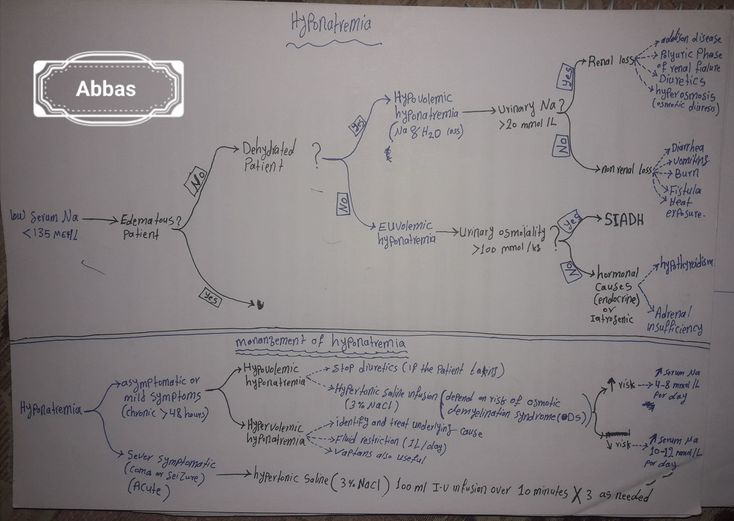 Hyponatremia
Abbas
low Serum Na
< 135 mEq/L
Edematous?
Patient
No
Yes
Dehydrated
Patient
?
Yes
No
Hypovolemic
hyponatremia
(Na & H2O loss)
Urinary Na?
>20 mmol/L
Yes
No
Renal loss
addison disease
Polyuric Phase
of renal fialure
Diuretics
hyperosmosis
(osmotic diuresis)
non renal loss
Diarrhea
Vomiting
Burn
Fistula
Heat
exposure.
Euvolemic
hyponatremia
Urinary osmolality
>100 mmol/kg
?
Yes
No
SIADH
hormonal
causes
(endocrine)
or
Iatrogenic
hypothyroidism
Adrenal
insufficiency
manangement of hyponatremia
Hyponatremia
asymptomatic or
mild symptoms
(chronic >48 hours)
Hypovolemic
hyponatremia
Stop diuretics (if the Patient taken)
Hypertonic saline infusion
(3% NaCl)
(depend on risk of osmotic
demyelination syndrome (ODS)
↑ risk
↑ Serum Na
4-8 mmol/L
Per day
↓ risk
↑ Serum Na
10-12 mmol/L
Per day
Hypervolemic
hyponatremia
identify and treat underlying cause
Fluid restriction (1L/day)
Vaptans also useful
Sever symptomatic
(coma or seizure)
(Acute)
hypertonic saline (3% NaCl) 100 ml I.V infusion over 10 minutes X 3 as needed